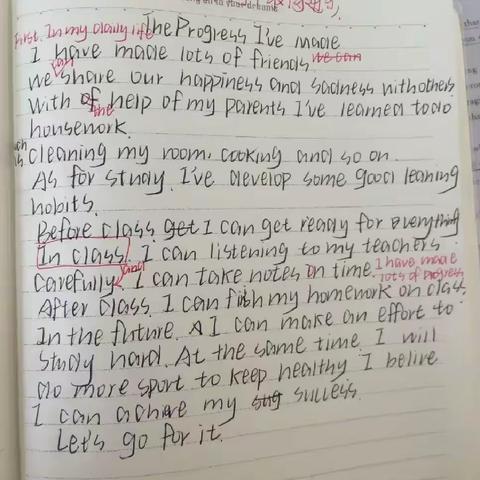 First. In my daily life The Progress I've made
I have made lots of friends. we can
we can share our happiness and sadness with others
With of the help of my parents I've learned to do
housework.
cleaning my room, cooking and so on.
As for study. I've develop some good leaning
habits.
Before class. get I can get ready for everything
In class. I can listening to my teachers
carefully and I can take notes on time. I have made lots of progress
After class. I can finish my homework on class.
In the future. I can make an effort to
study hard. At the same time. I will
do more sport to keep healthy. I belive
I can achive my success.
Let's go for it.